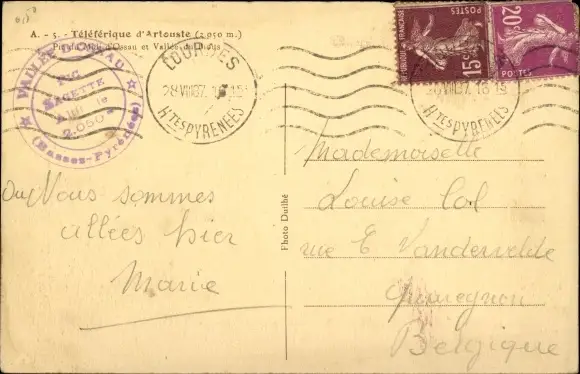 A. - 5. - Téléférique d'Artouste (2.050 m.)
Pic du Midi d'Ossau et Vallée du
VALLÉE D'OSSAU
PIC
SAGETTE
Altitude
2.050
(Basses-Pyrénées)
LOURDES
28 VIII 37.
Htes PYRENEES
POSTES
15c
20c
POSTES
Htes PYRENEES
Où Nous sommes
allées hier
Marie
Photo Dutilhé
Mademoiselle
Louise Col
rue E Vandervelde
Quaregnon
Belgique